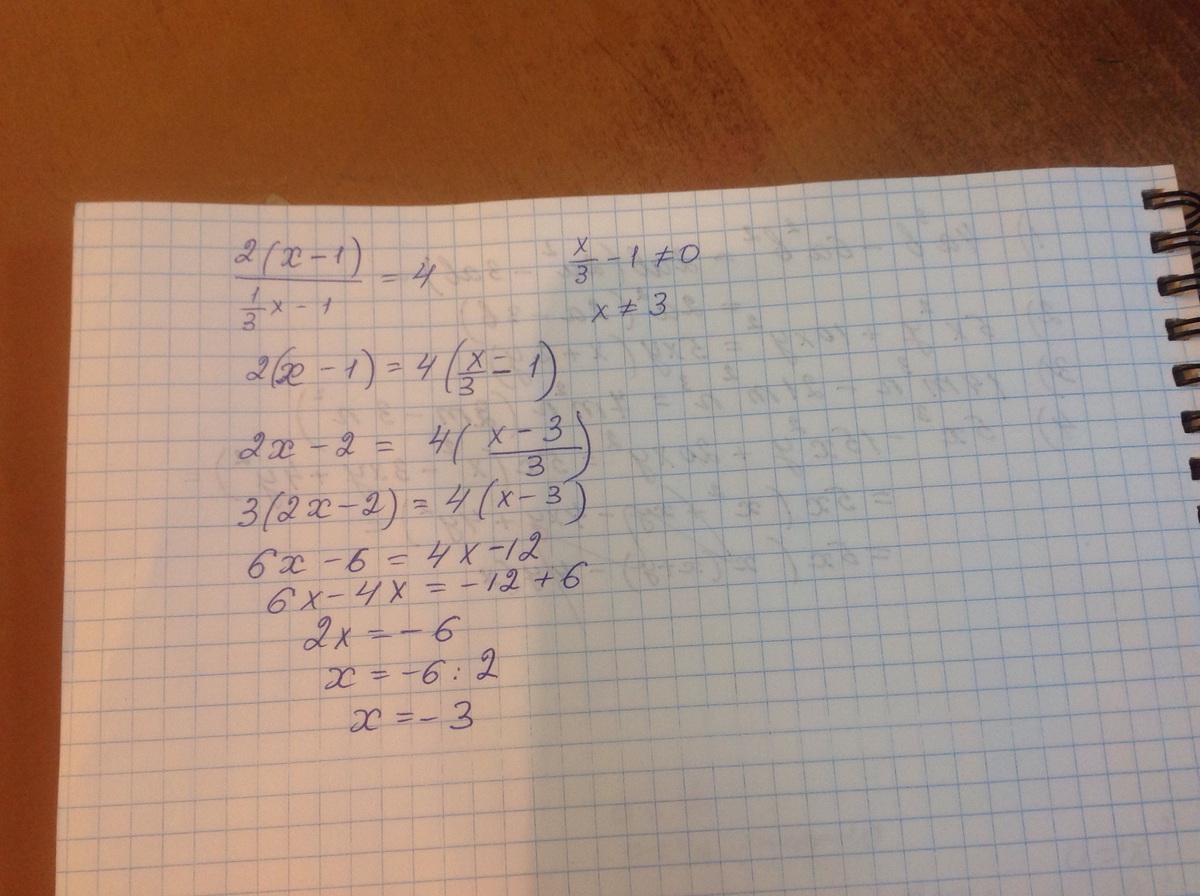 2(x-1)/(1/3 x - 1) = 4
x/3 - 1 ≠ 0
x ≠ 3
2(x - 1) = 4(x/3 - 1)
2x - 2 = 4((x - 3)/3)
3(2x - 2) = 4(x - 3)
6x - 6 = 4x - 12
6x - 4x = -12 + 6
2x = -6
x = -6 : 2
x = -3